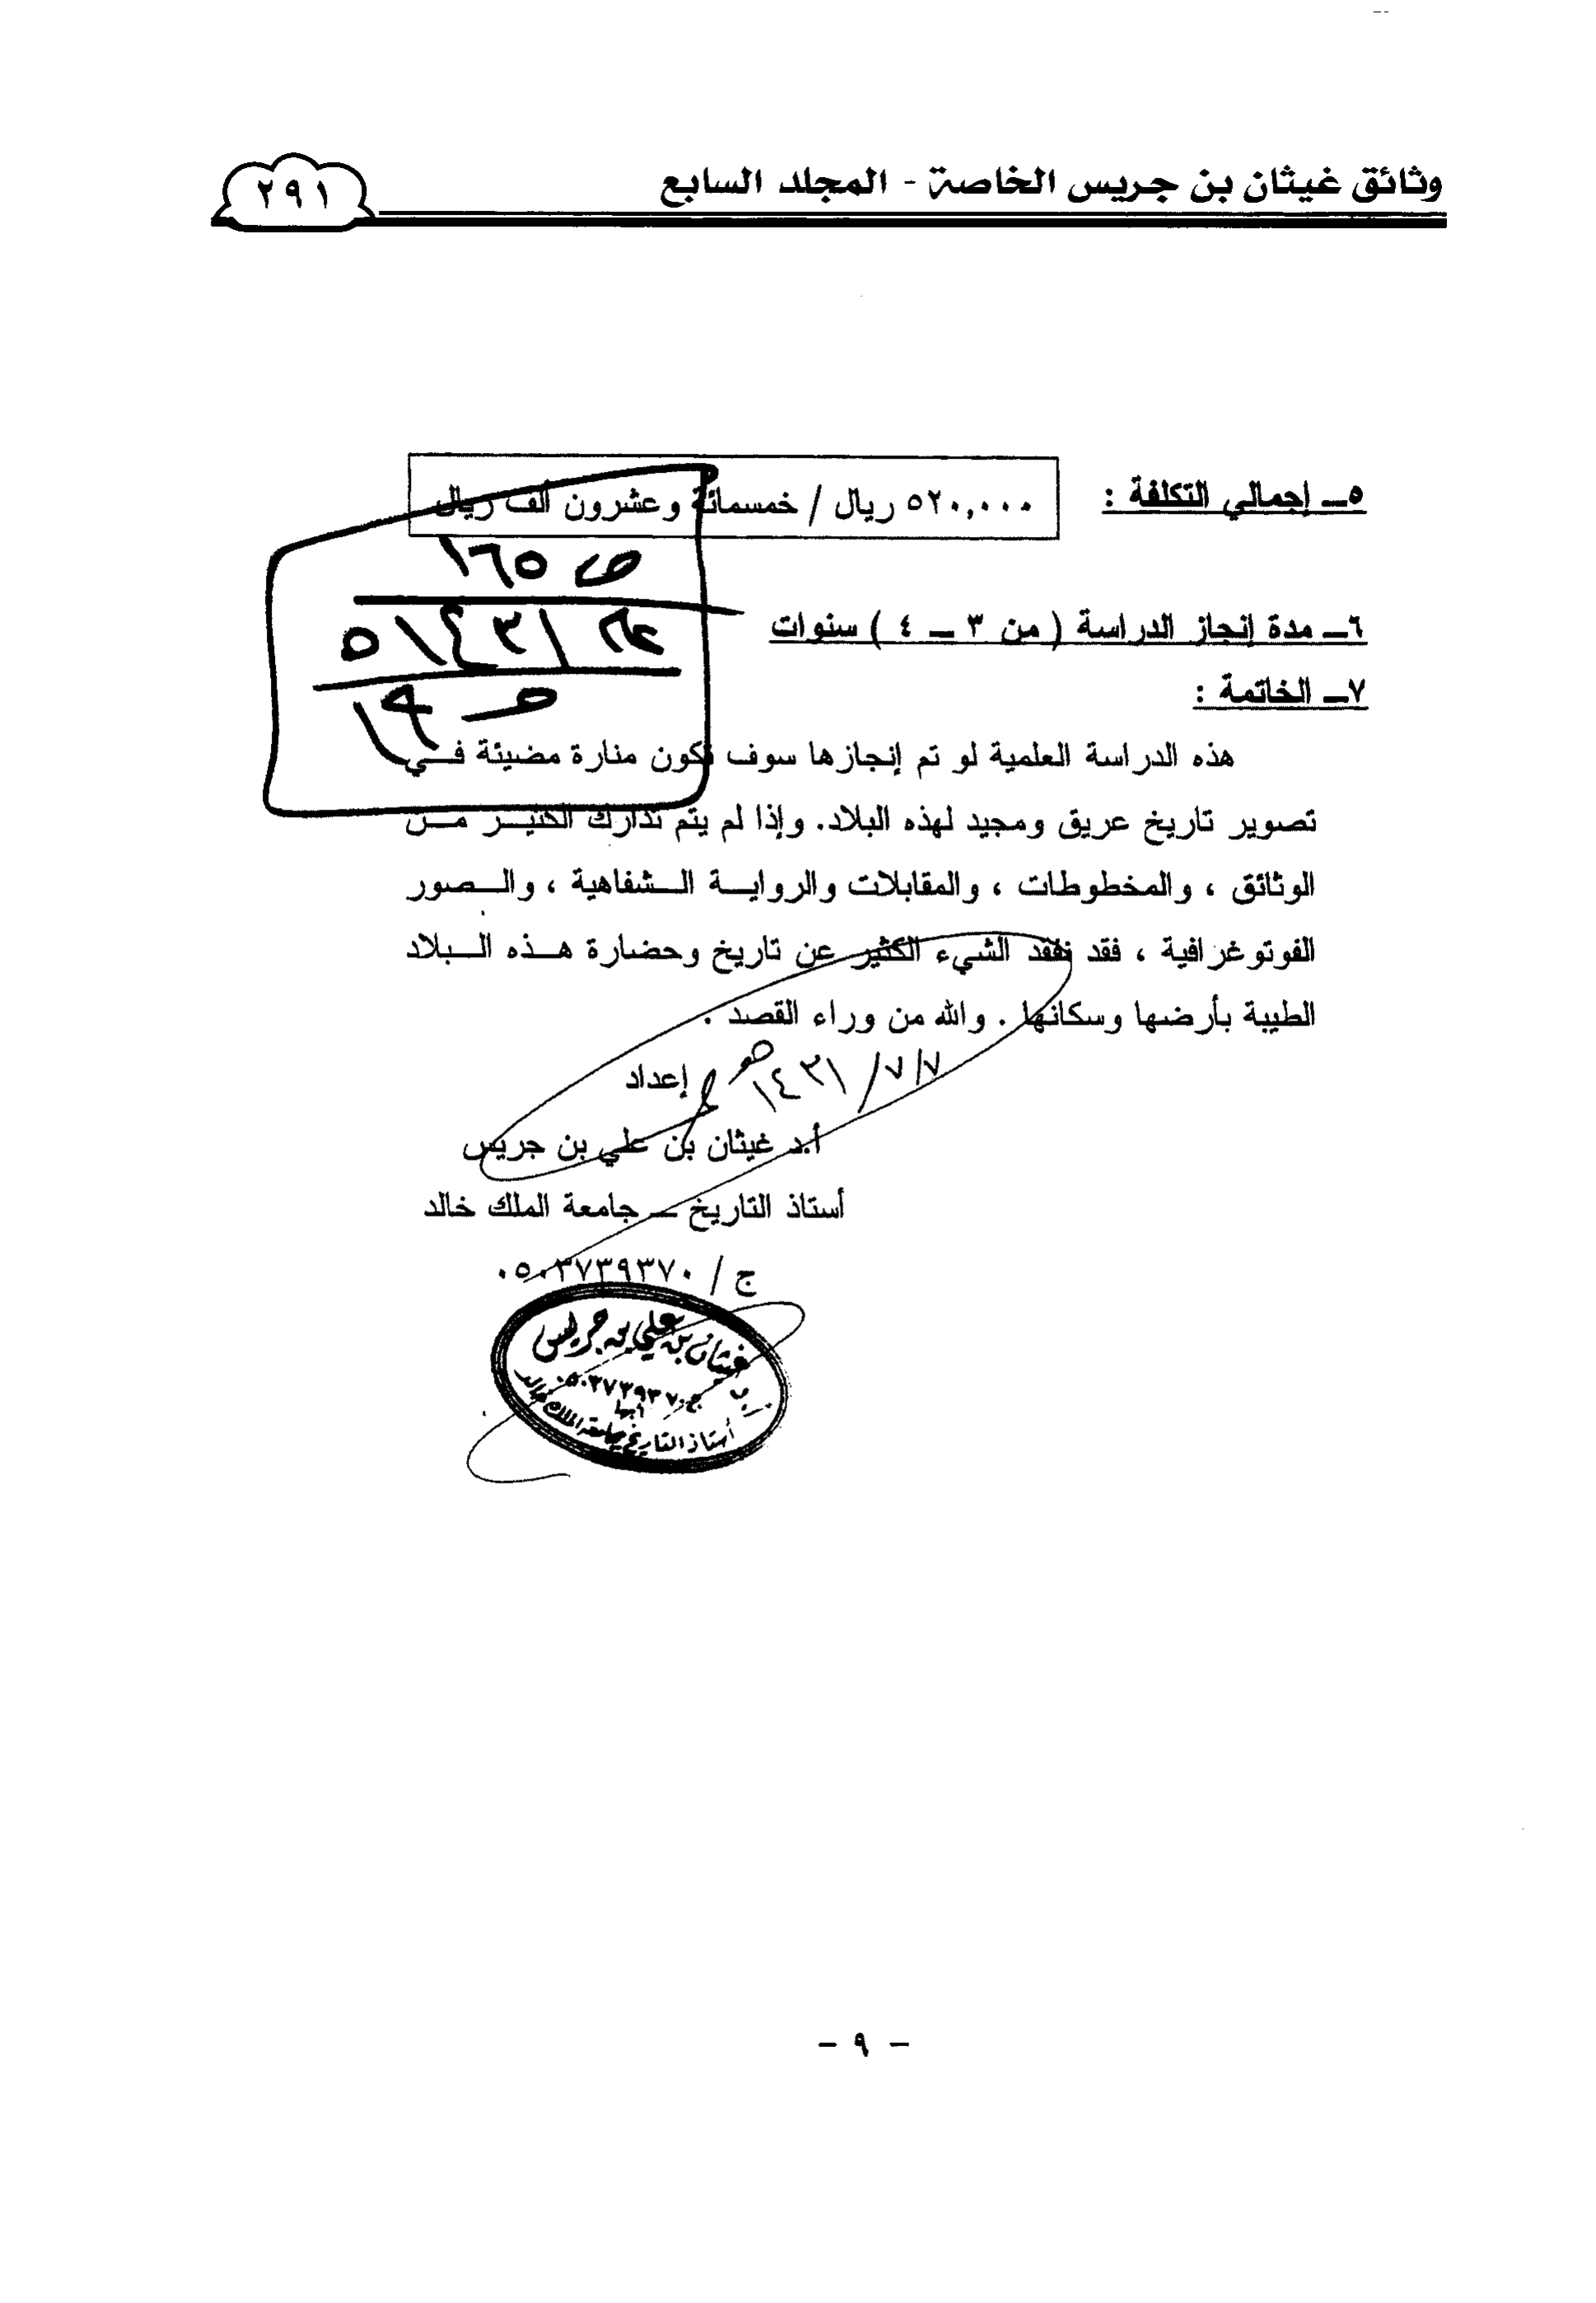 وثائق غيثان بن جريس الخاصة - المجلد السابع
٢٩١
٥ــ إجمالي التكلفة :
٥٢٠,٠٠٠ ريال / خمسمائة وعشرون ألف ريال
ص ١٦٥
٦ــ مدة إنجاز الدراسة ( من ٣ ــ ٤ ) سنوات
٧ــ الخاتمة :
هذه الدراسة العلمية لو تم إنجازها سوف تكون منارة مضيئة فــي
تصوير تاريخ عريق ومجيد لهذه البلاد. وإذا لم يتم تدارك الكثيــر مــن
الوثائق ، والمخطوطات ، والمقابلات والروايــة الــشفاهية ، والــصور
الفوتوغرافية ، فقد نفقد الشيء الكثير عن تاريخ وحضارة هــذه الــبلاد
الطيبة بأرضها وسكانها . والله من وراء القصد .
٧/٧/١٤٣١هـ
إعداد
أ.د غيثان بن علي بن جريس
أستاذ التاريخ ــ جامعة الملك خالد
ج / ٠٥٠٣٧٣٩٣٧٠
غيثان بن علي بن جريس
ج ٠٥٠٣٧٣٩٣٧٠
أبها
أستاذ التاريخ بجامعة الملك خالد
- ٩ -